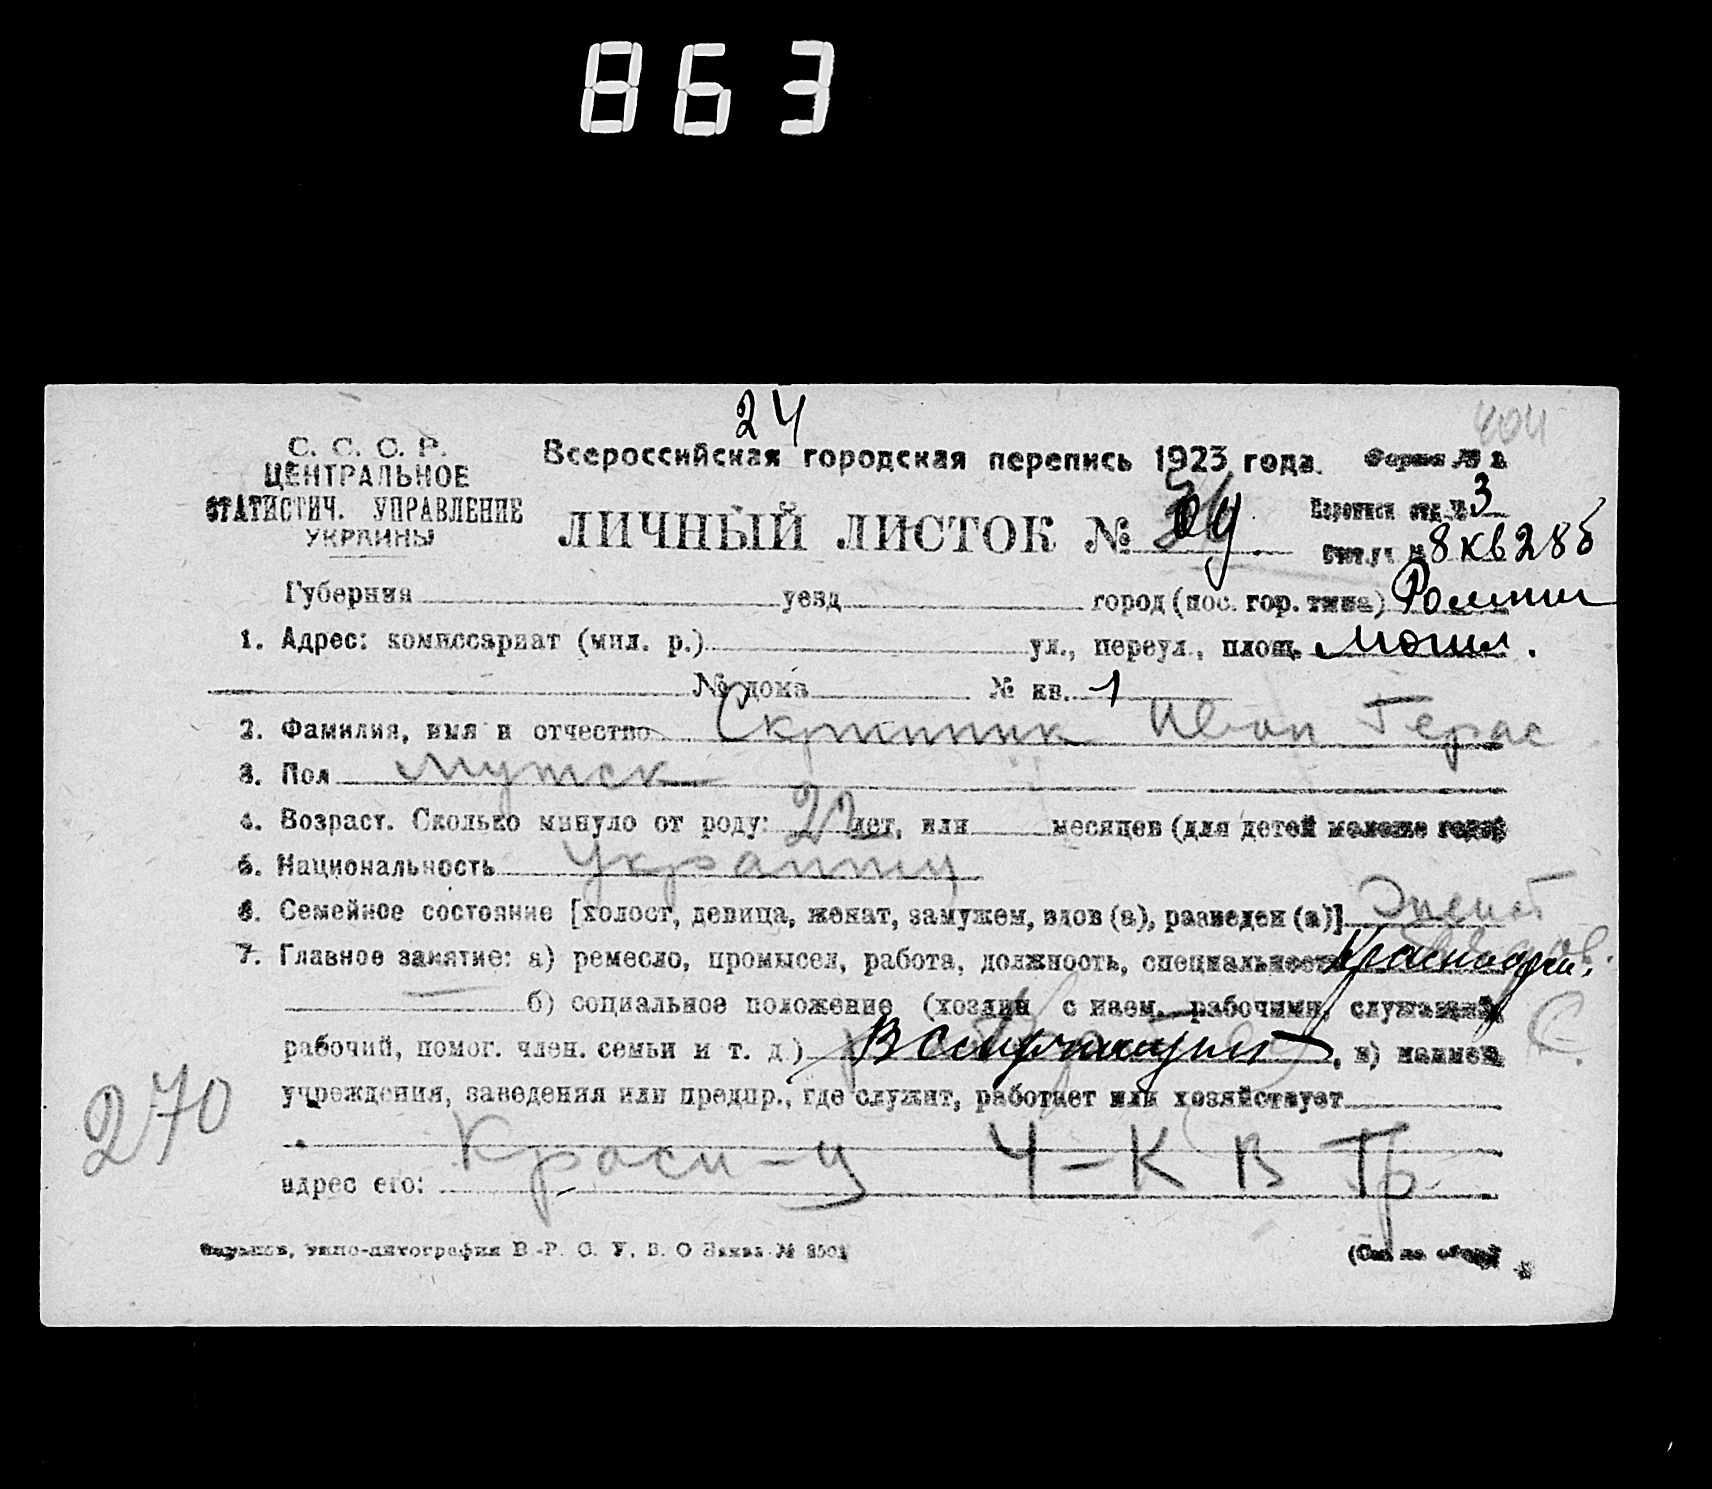 863
24
404
С. С. С. Р.
ЦЕНТРАЛЬНОЕ
СТАТИСТИЧ. УПРАВЛЕНИЕ
УКРАИНЫ
Всероссийская городская перепись 1923 года. Форма №
ЛИЧНЫЙ ЛИСТОК №
Переписн отд. № 3
Счет. уч. № 8 кв 285
Губерния уезд город (пос. гор. типа) Ромны
1. Адрес: комиссариат (мил. р.) ул., переул., площ.
№ дома № кв. 1
2. Фамилия, имя и отчество Скрипник Иван Герас
3. Пол Мужск
4. Возраст. Сколько минуло от роду: 22 лет, или месяцев (для детей моложе года)
5. Национальность Украинец
6. Семейное состояние [холост, девица, женат, замужем, вдов (а), разведен (а)] Женат
7. Главное занятие: а) ремесло, промысел, работа, должность, специальность
б) социальное положение (хозяин с наем. рабочими, служащий,
рабочий, помог. член. семьи и т. д.) , в) наимен.
учреждения, заведения или предпр., где служит, работает или хозяйствует
270
Красн-ц 4-К В Тр
адрес его:
Харьков, типо-литография В.-Р. С. У. В. О Заказ №
(См. на обор.)